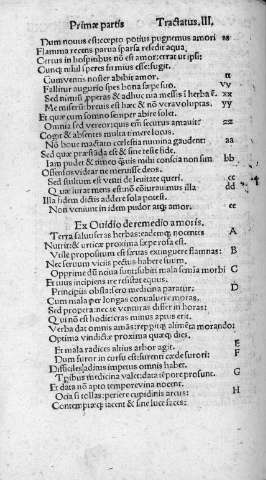 Primæ partis Tractatus, III,
Dum nouus est: cœpto potius pugnemus amori ss
Flamma recens parua sparsa resedit aqua.
Certus in hospitibus nō est amor: errat ut ipsi:
Cunq; nihil speres firmius esse fugit.
Cum uenit nouser abibit amor. tt
Fallitur augurio spes bona sæpe suo. vv
Sed nimis pperas & adhuc tua messis i herba ē. xx
Me miserū breuis est hæc & nō uera uoluptas. yy
Et quæ cum somno semper abire solet.
Omnia sed uereor: quis em̄ securus amauit? zz
Cogit & absentes multa timere locus.
Nō hoīe nactato ecclesia numina gaudent: aa
Sed quæ præstada est & sine teste fide.
Iam pudet & timeo quis mihi conscia non sim bb
Ostensos videar ne meruisse deos.
Sed stultum est venti de leuitate queri. cc
Quæ iurat mens est: nō cōiurauimus illa: dd
Illa fidem dictis addere sola potest.
Non veniunt in idem pudor atq; amor. ee
Ex Ouidio de remedio amoris.
Terra salutiferas herbas: eademq; nocentes A
Nutrit: & urticæ proxima sæpe rosa est.
Vtile propositum est sæuas exinguere flammas: B
Nec seruum vitii pectus habere suum.
Opprime dū noua sunt subiti mala semia morbi C
Et tuus incipiens ire resistat equus.
Principiis obsta: sero medicina paratur: D
Cum mala per longas conualuere moras.
Sed propera: nec te venturas differ in horas:
Qui nō est hodie: cras minus aptus erit.
Verba dat omnis amor: repitq; alimēta morando:
Optima vindictæ proxima quæq; dies.
Et mala radices altius arbor agit. E
Dum furor in cursu est: currenti cæde furori: F
Difficiles aditus impetus omnis habet.
Tpibus medicina valet: data tēpore prosunt. G
Et data nō apto tempore vina nocent.
Ocia si tollas: periere cupidinis arcus: H
Contemptæq; iacent & sine luce faces: